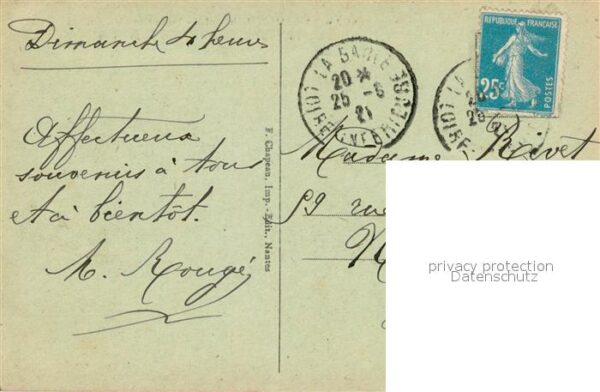 Dimanche 4 heures
Affectueux
souvenirs à tous
et à bientôt.
M. Rougé
F. Chapeau, Imp.-Édit., Nantes
LA BAULE
20 *
25 - 6
21
LOIRE INFERIEURE
REPUBLIQUE FRANÇAISE
25c
POSTES
Madame Rivet
59 rue
privacy protection
Datenschutz